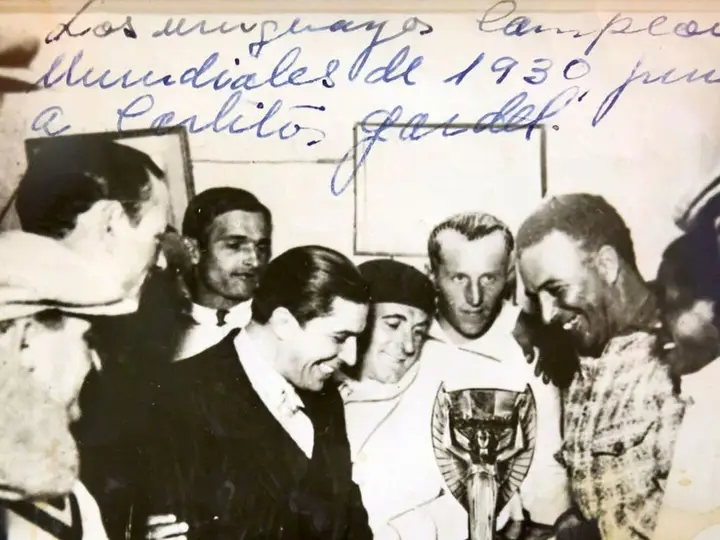 Los uruguayos Campeo
Mundiales de 1930 jun
a Carlitos gardel."